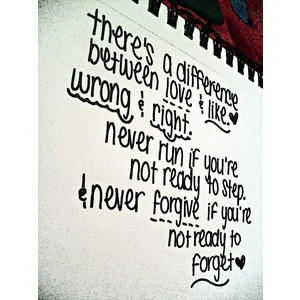 there's a difference
between love & like.
wrong & right.
never run if you're
not ready to step.
& never forgive if you're
not ready to
forget